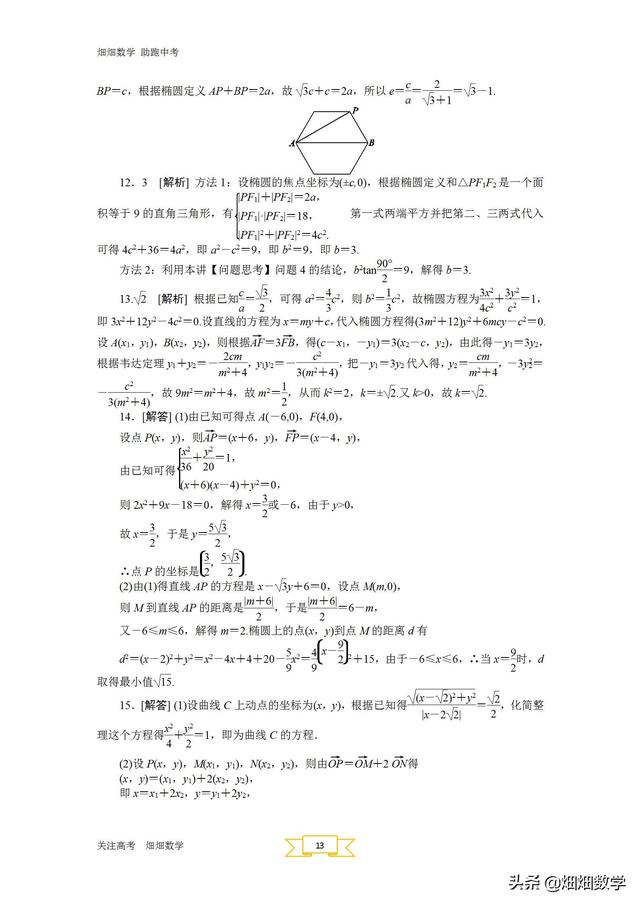 畑畑数学 助跑中考
BP=c，根据椭圆定义 AP+BP=2a，故 √3c+c=2a，所以 e=c/a=2/(√3+1)=√3-1.
P
A B
12．3 [解析] 方法 1：设椭圆的焦点坐标为(±c,0)，根据椭圆定义和△PF₁F₂ 是一个面
积等于 9 的直角三角形，有{|PF₁|+|PF₂|=2a， |PF₁|·|PF₂|=18， |PF₁|²+|PF₂|²=4c². 第一式两端平方并把第二、三两式代入
可得 4c²+36=4a²，即 a²-c²=9，即 b²=9，即 b=3.
方法 2：利用本讲【问题思考】问题 4 的结论，b²tan(90°/2)=9，解得 b=3.
13.√2 [解析] 根据已知c/a=√3/2，可得 a²=4/3c²，则 b²=1/3c²，故椭圆方程为3x²/4c²+3y²/c²=1，
即 3x²+12y²-4c²=0.设直线的方程为 x=my+c，代入椭圆方程得(3m²+12)y²+6mcy-c²=0.
设 A(x₁，y₁)，B(x₂，y₂)，则根据→AF=3→FB，得(c-x₁，-y₁)=3(x₂-c，y₂)，由此得-y₁=3y₂，
根据韦达定理 y₁+y₂=-2cm/(m²+4)，y₁y₂=-c²/(3(m²+4))，把-y₁=3y₂ 代入得，y₂=cm/(m²+4)，-3y₂²=
-c²/(3(m²+4))，故 9m²=m²+4，故 m²=1/2，从而 k²=2，k=±√2.又 k>0，故 k=√2.
14．[解答] (1)由已知可得点 A(-6,0)，F(4,0)，
设点 P(x，y)，则→AP=(x+6，y)，→FP=(x-4，y)，
由已知可得{x²/36+y²/20=1， (x+6)(x-4)+y²=0，
则 2x²+9x-18=0，解得 x=3/2或-6，由于 y>0，
故 x=3/2，于是 y=5√3/2，
∴点 P 的坐标是(3/2，5√3/2).
(2)由(1)得直线 AP 的方程是 x-√3y+6=0，设点 M(m,0)，
则 M 到直线 AP 的距离是|m+6|/2，于是|m+6|/2=6-m，
又-6≤m≤6，解得 m=2.椭圆上的点(x，y)到点 M 的距离 d 有
d²=(x-2)²+y²=x²-4x+4+20-5/9x²=4/9(x-9/2)²+15，由于-6≤x≤6，∴当 x=9/2时，d
取得最小值√15.
15．[解答] (1)设曲线 C 上动点的坐标为(x，y)，根据已知得√((x-√2)²+y²)/|x-2√2|=√2/2，化简整
理这个方程得x²/4+y²/2=1，即为曲线 C 的方程．
(2)设 P(x，y)，M(x₁，y₁)，N(x₂，y₂)，则由→OP=→OM+2 →ON得
(x，y)=(x₁，y₁)+2(x₂，y₂)，
即 x=x₁+2x₂，y=y₁+2y₂，
关注高考 畑畑数学
13
头条 @畑畑数学